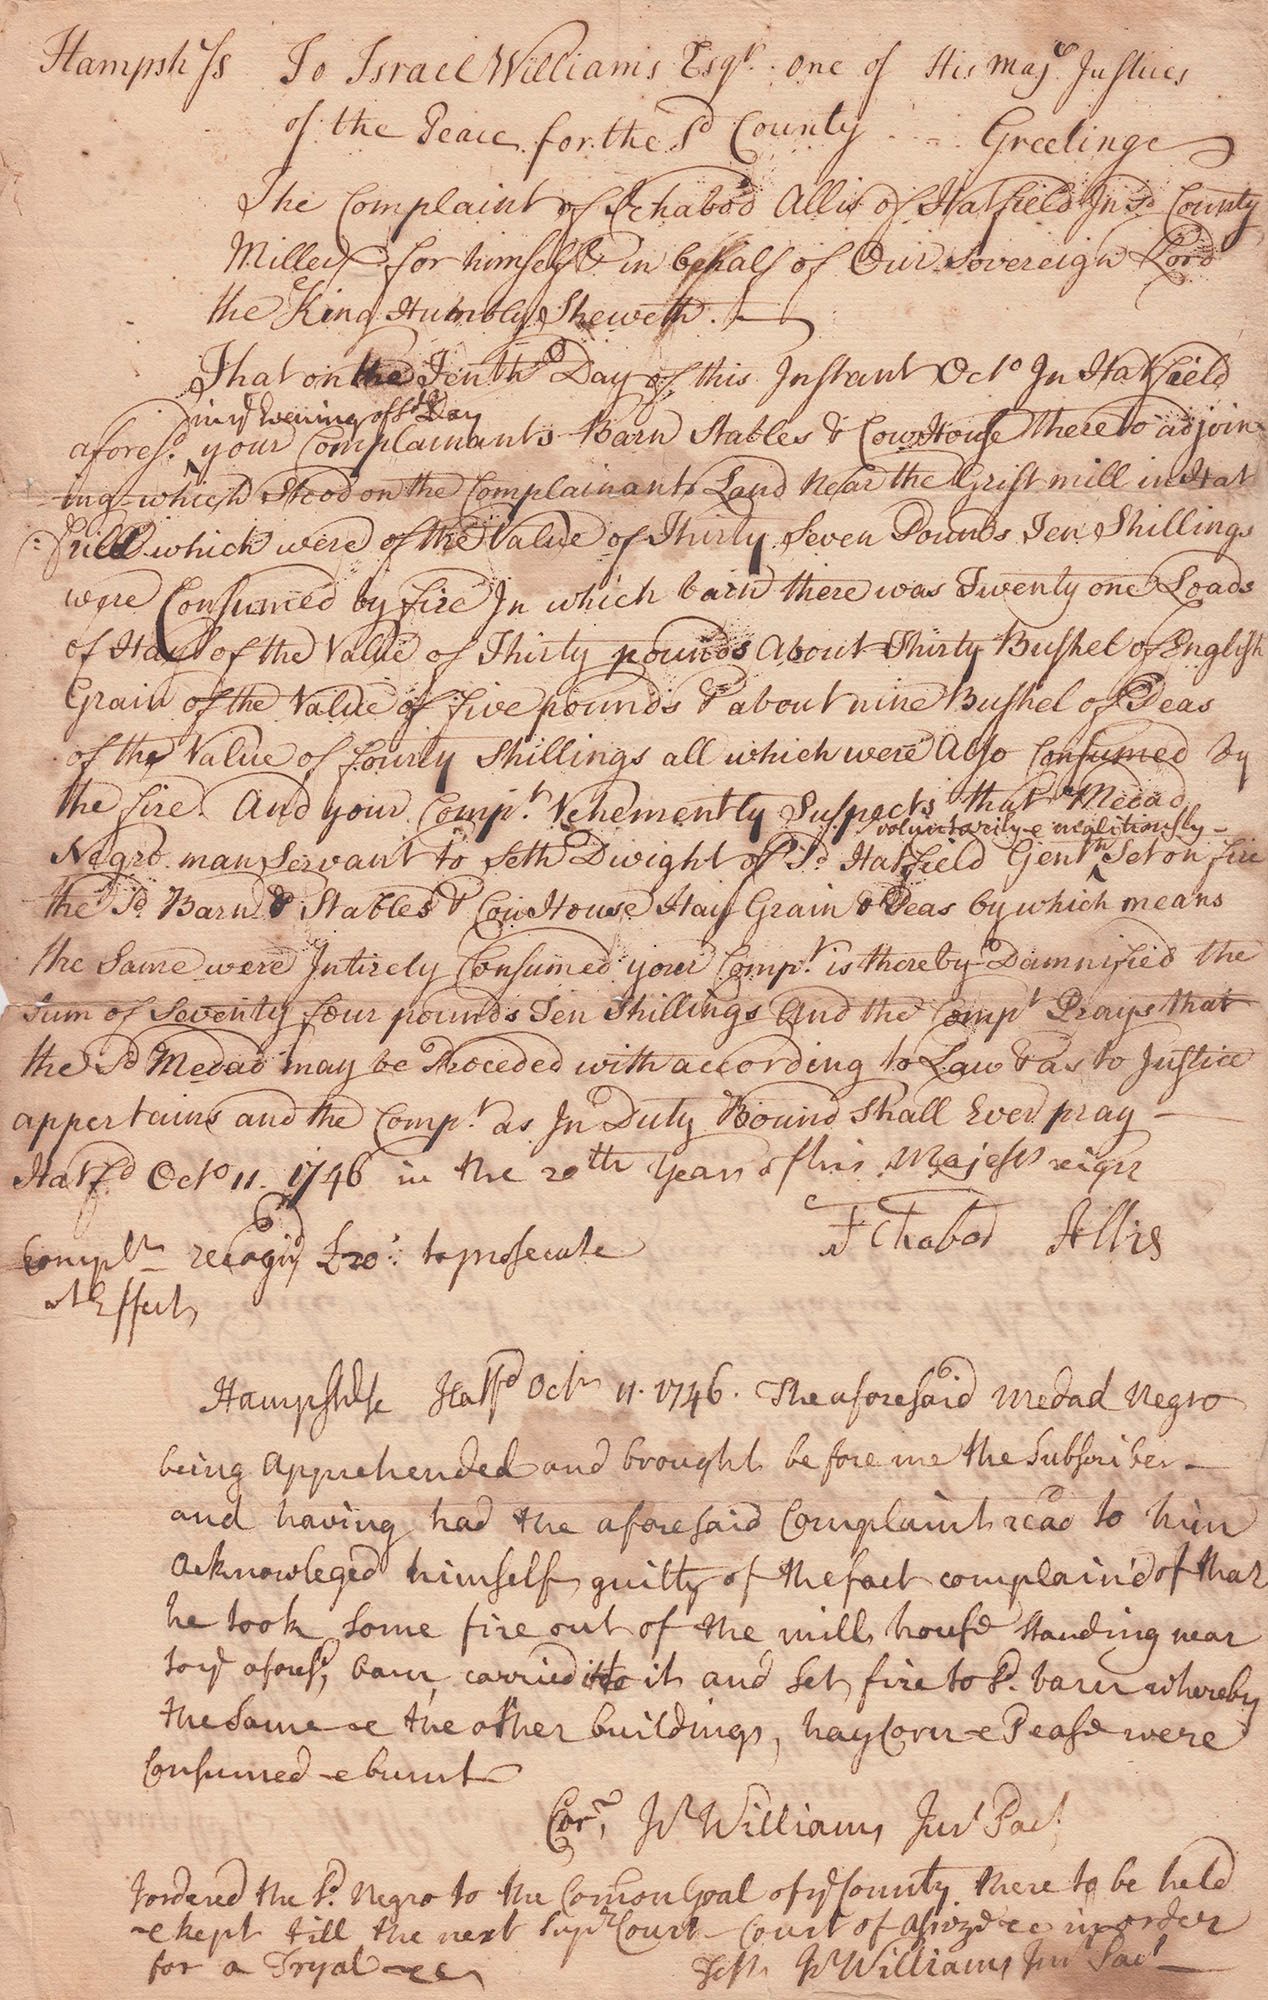 Hampshr ss To Israel Williams Esqr. one of His Majs. Justices
of the Peace for the sd County Greeting
The Complaint of Ichabod Allis of Hatfield In sd County
Miller for himself & in behalf of Our Sovereign Lord
the King Humbly Sheweth.
That on the Tenth Day of this Instant Octo In Hatfield
in ye Evening of sd Day
aforesd. your Complainants Barn Stables & Cow House there to adjoin-
ing which Stood on the Complainants Land Near the Grist mill in Hat
:field which were of the Value of Thirty Seven Pounds Ten Shillings
were Consumed by fire In which barn there was Twenty one Loads
of Hay of the Value of Thirty pounds About Thirty Bushel of English
Grain of the Value of five pounds & about nine Bushel of Peas
of the Value of fourty Shillings all which were Also Consumed by
the fire. And your Compt. Vehemently Suspects that Medad
voluntarily &
Negro man Servant to Seth Dwight of sd Hatfield Gentn Set on fire
the sd Barn & Stables & Cow House Hay Grain & Peas by which means
the Same were Intirely Consumed your Compt. is thereby Damnified the
Sum of Seventy four pounds Ten Shillings And the Compt Prays that
the sd Medad may be Proceded with according to Law & as to Justice
appertains and the Compt. as In Duty Bound Shall Ever pray
Hatfd Octo 11. 1746 in the 20th Year of his Majests reign
Ichabod Allis
Complt recogd £20: to prosecute
wt Effect
Hampsh ss Hatfd Octr 11. 1746. The aforesaid Medad Negro
being apprehended and brought before me the Subscriber
and having had the aforesaid Complaint read to him
acknowleged himself guilty of the fact complain'd of that
he took some fire out of the mill house standing near
to ye aforesd, barn, carried to it and set fire to sd. barn whereby
the same & the other buildings, hay Corn & Pease were
Consumed & burnt
Cor. Isr Williams Just Pacs
I ordered the sd. Negro to the Comon Goal of ye County there to be held
& kept till the next Supr Court Court of Assize &c in order
for a Tryal &c
Test Isr Williams Just Pacs